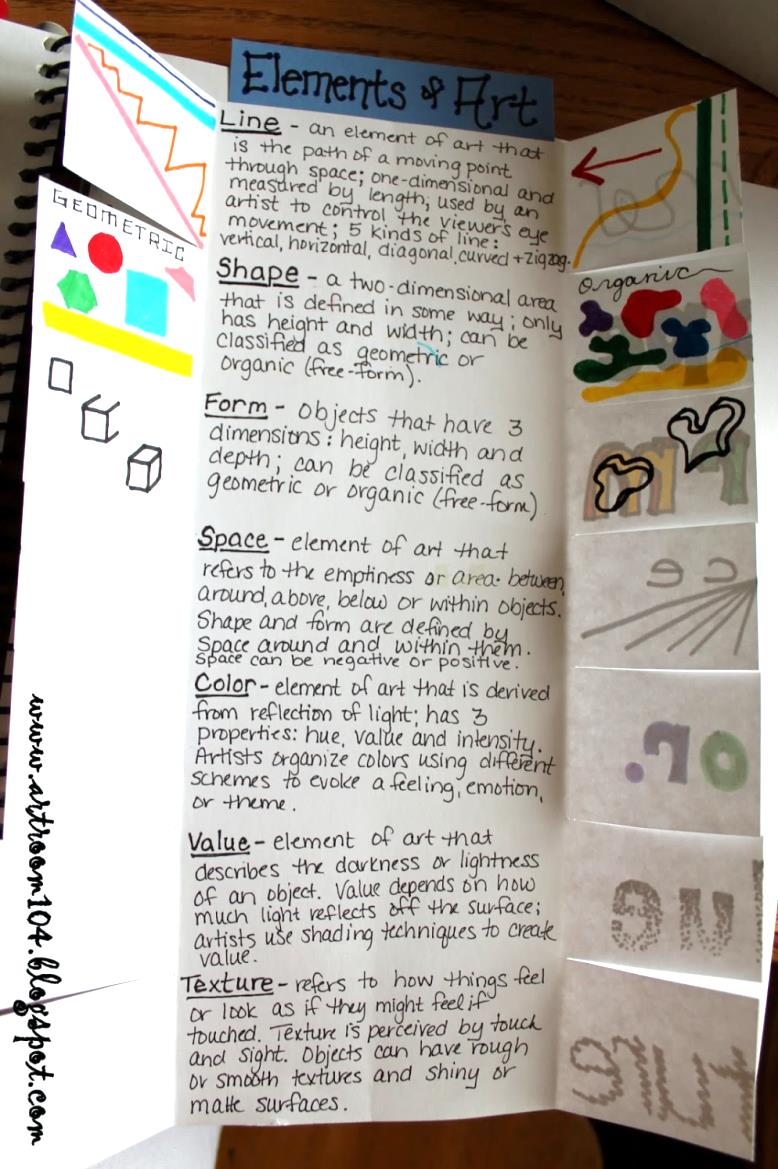 Elements of Art
Line - an element of art that
is the path of a moving point
through space; one-dimensional and
measured by length; used by an
artist to control the viewer's eye
movement; 5 kinds of line:
vertical, horizontal, diagonal, curved + zigzag.
GEOMETRIC
Shape - a two-dimensional area
that is defined in some way; only
has height and width; can be
classified as geometric or
organic (free-form).
Organic
Form - Objects that have 3
dimensions: height, width and
depth; can be classified as
geometric or organic (free-form)
Space - element of art that
refers to the emptiness or area between,
around, above, below or within objects.
Shape and form are defined by
Space around and within them.
Space can be negative or positive.
Color - element of art that is derived
from reflection of light; has 3
properties: hue, value and intensity.
Artists organize colors using different
schemes to evoke a feeling, emotion,
or theme.
Value - element of art that
describes the darkness or lightness
of an object. Value depends on how
much light reflects off the surface;
artists use shading techniques to create
value.
Texture - refers to how things feel
or look as if they might feel if
touched. Texture is perceived by touch
and sight. Objects can have rough
or smooth textures and shiny or
matte surfaces.
www.artroom104.blogspot.com